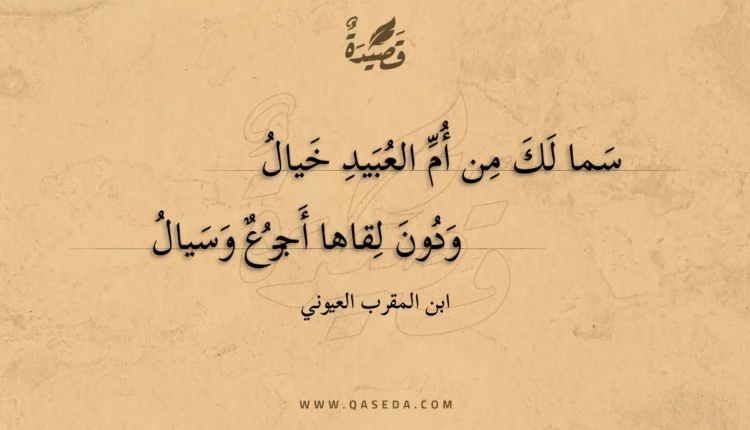 قَصِيدَةٌ
سَما لَكَ مِن أُمِّ العُبَيدِ خَيالُ
وَدُونَ لِقاها أَجرُعٌ وَسَيالُ
ابن المقرب العيوني
WWW.QASEDA.COM